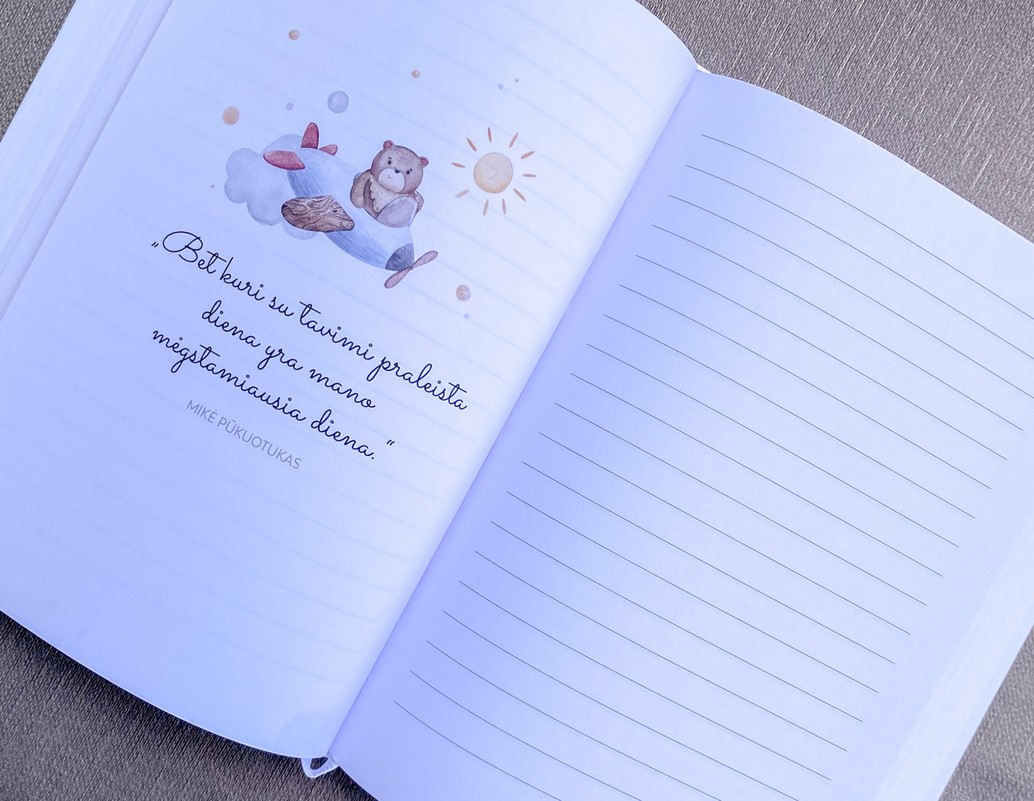 „Bet kuri su tavimi praleista
diena yra mano
mėgstamiausia diena.“
MIKĖ PŪKUOTUKAS